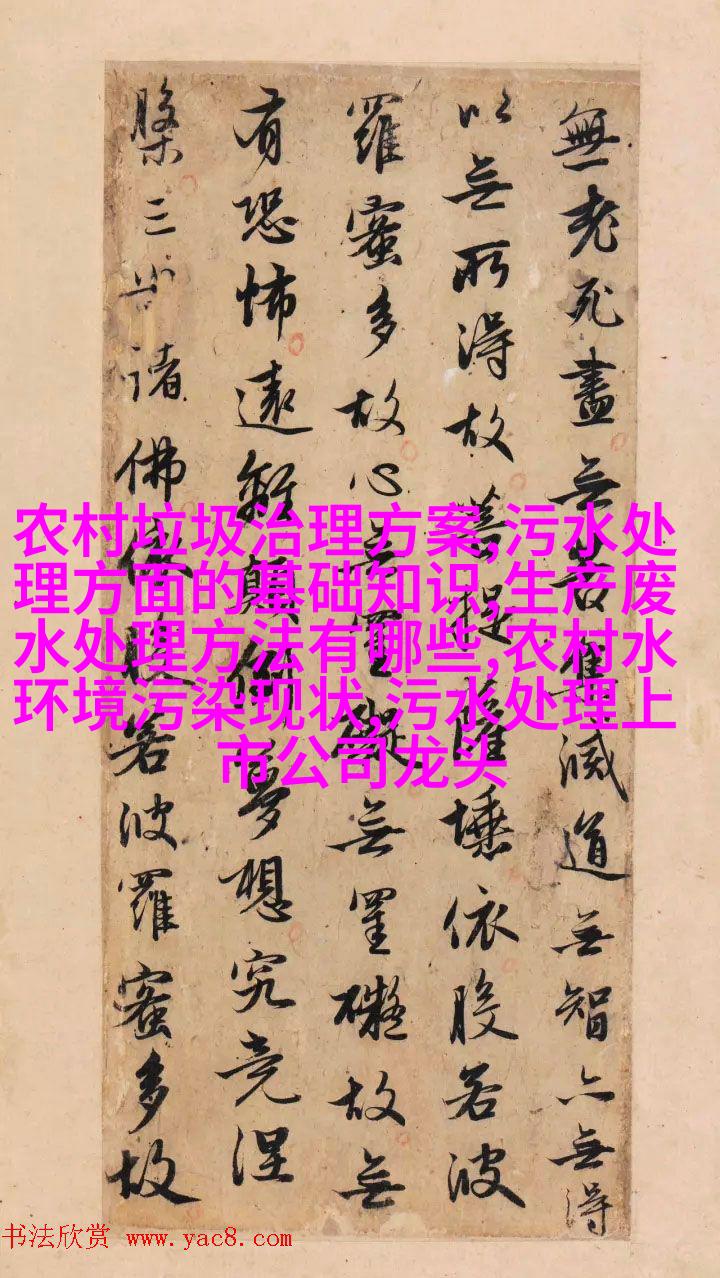 無老死盡无苦集滅道无智亦无得
以无所得故菩提薩埵依般若波
羅蜜多故心无罣礙无罣礙故无
有恐怖遠離顛倒夢想究竟涅
槃三世諸佛依般若波羅蜜多故
农村垃圾治理方案,污水处
理方面的基础知识,生产废
水处理方法有哪些,农村水
环境污染现状,污水处理上
市公司龙头
书法欣赏 www.yac8.com